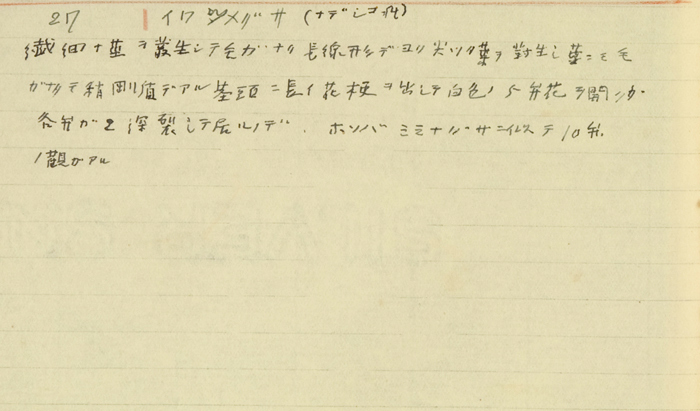 27 イワツメグサ (ナデシコ科)
繊細ナ茎ヲ叢生シテ毛ガナク長線形デヨリ尖ッタ葉ヲ対生シ葉ニモ毛
ガナクテ稍剛質デアル茎頭ニ長イ花梗ヲ出シテ白色ノ5弁花ヲ開クガ
各弁ガ2深裂シテ居ルノデ、ホソバミミナグサニ似テ10弁
ノ観ガアル